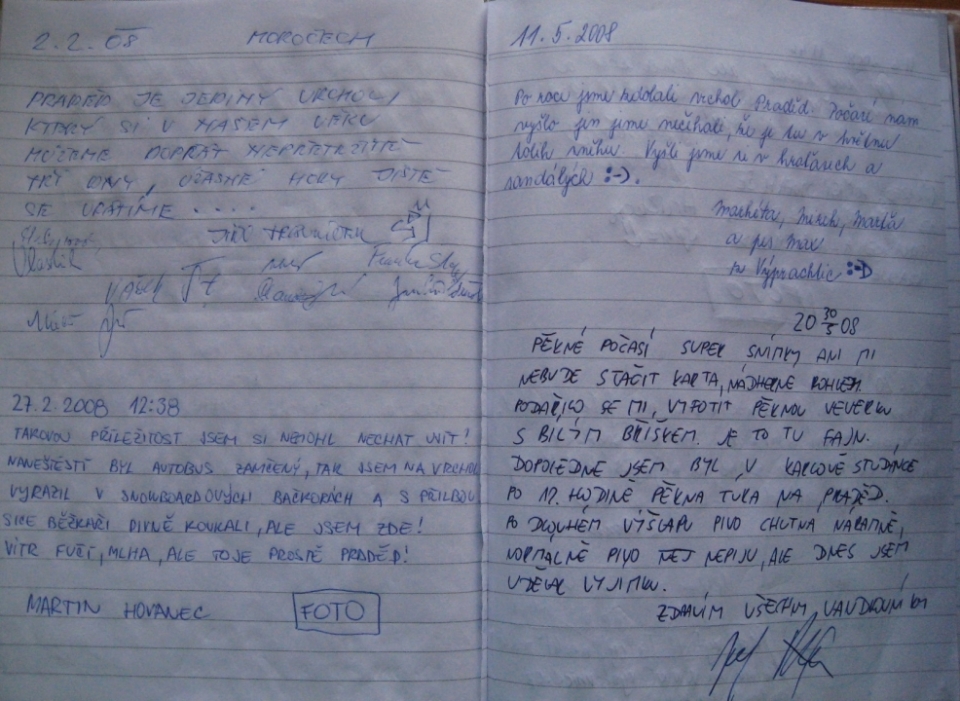 2.2.08 HOROČECH
PRADĚD JE JEDINÝ VRCHOL,
KTERÝ SI V NAŠEM VĚKU
MŮŽEME DOPŘÁT NEPŘETRŽITĚ
TŘI DNY, ÚŽASNÉ HORY PŘÍŠTĚ
SE VRÁTÍME ....
JIŘÍ
Vlastík
VAŠEK
27.2.2008 12:38
TAKOVOU PŘÍLEŽITOST JSEM SI NEMOHL NECHAT UJÍT!
NANEŠTĚSTÍ BYL AUTOBUS ZAMČENÝ, TAK JSEM NA VRCHOL
VYRAZIL V SNOWBOARDOVÝCH BAČKORÁCH A S PŘILBOU
SICE BĚŽKAŘI DIVNĚ KOUKALI, ALE JSEM ZDE!
VÍTR FUČÍ, MLHA, ALE TO JE PROSTĚ PRADĚD!
MARTIN HOVANEC FOTO
11.5.2008
Po roce jsme zdolali vrchol Praděd. Počasí nám
vyšlo jen jsme nečekali, že je tu v květnu
tolik sněhu. Vyšli jsme si v kraťasech a
sandálech :-).
Markéta, Mirek,
a pes Max
z Výprachtic :-D
20 30/5 08
PĚKNÉ POČASÍ SUPER SNÍMKY ANI MI
NEBUDE STAČIT KARTA, NÁDHERNE
PODAŘILO SE MI, VYFOTIT PĚKNOU VEVERKU
S BILÍM BŘÍŠKEM. JE TO TU FAJN.
DOPOLEDNE JSEM BYL, V KARLOVĚ STUDÁNCE
PO 12. HODINĚ PĚKNA TÚRA NA PRADĚD.
PO DLOUHÉM VÝŠLAPU PIVO CHUTNÁ NÁRAMNĚ,
NORMALNĚ PIVO NEPIJU, ALE DNES JSEM
UDĚLAL VYJIMKU.
ZDRAVÍM VŠECHNY